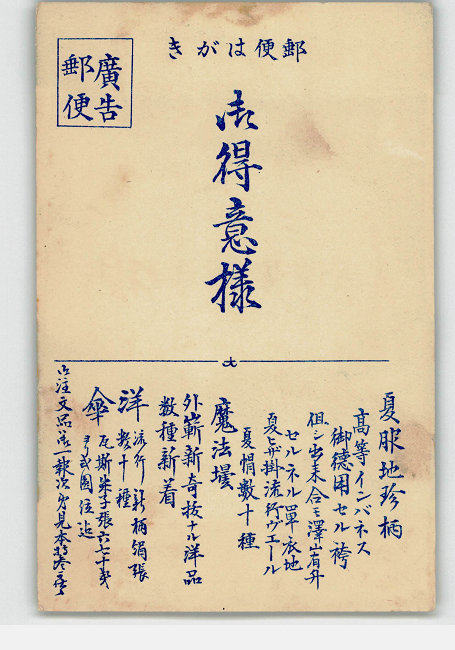 郵便はがき
廣告
郵便
御得意様
夏服地珍柄
高等インバネス
御徳用セル袴
但シ出来合モ澤山有升
セルネル單衣地
夏ヒザ掛流行ヴエール
夏帽数十種
魔法壜
外嶄新奇抜ナル洋品
数種新着
洋傘
流行新柄絹張
数十種
瓦斯朱子張六七十銭
ヨリ弐圓位迄
御注文品ハ御一報次第見本